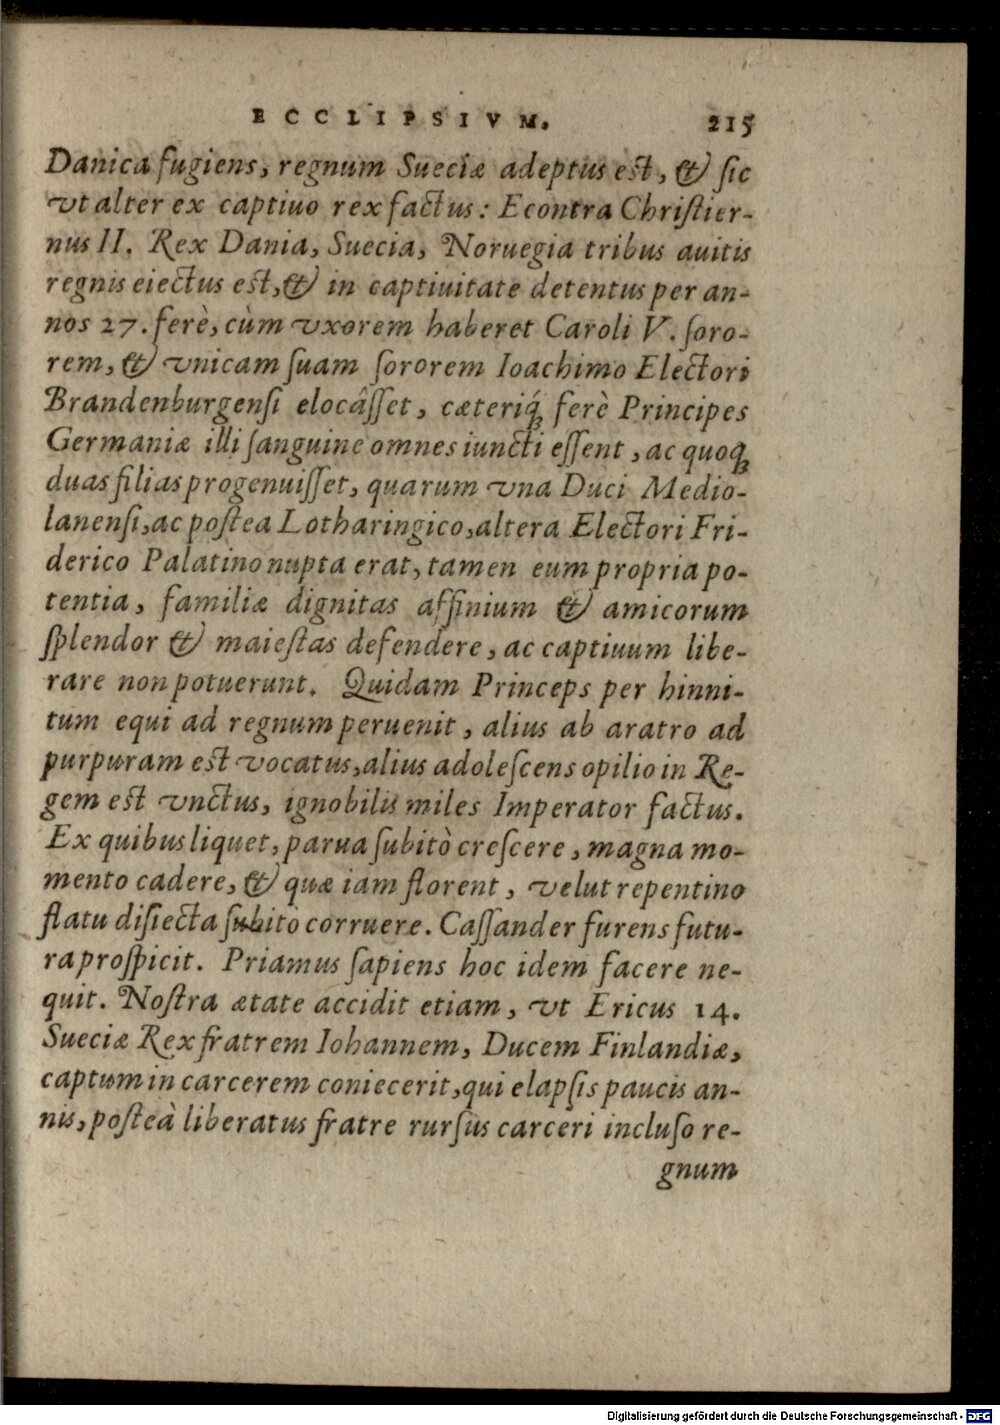 ECCLIPSIVM. 215
Danica fugiens, regnum Sueciæ adeptus est, & ſic
vt alter ex captiuo rex factus: Econtra Chriſtier-
nus II. Rex Dania, Suecia, Noruegia tribus auitis
regnis eiectus est, & in captiuitate detentus per an-
nos 27. ferè, cùm vxorem haberet Caroli V. ſoro-
rem, & vnicam ſuam ſororem Ioachimo Electori
Brandenburgenſi elocâſſet, cæteriq́; ferè Principes
Germaniæ illi ſanguine omnes iuncti eſſent, ac quoq;
duas filias progenuiſſet, quarum vna Duci Medio-
lanenſi, ac poſtea Lotharingico, altera Electori Fri-
derico Palatino nupta erat, tamen eum propria po-
tentia, familiæ dignitas affinium & amicorum
ſplendor & maieſtas defendere, ac captiuum libe-
rare non potuerunt. Quidam Princeps per hinni-
tum equi ad regnum peruenit, alius ab aratro ad
purpuram est vocatus, alius adoleſcens opilio in Re-
gem est vnctus, ignobilis miles Imperator factus.
Ex quibus liquet, parua ſubitò creſcere, magna mo-
mento cadere, & quæ iam florent, velut repentino
flatu diſiecta ſubitò corruere. Caſſander furens futu-
ra proſpicit. Priamus ſapiens hoc idem facere ne-
quit. Noſtra ætate accidit etiam, vt Ericus 14.
Sueciæ Rex fratrem Iohannem, Ducem Finlandiæ,
captum in carcerem coniecerit, qui elapſis paucis an-
nis, poſteà liberatus fratre rurſus carceri incluſo re-
gnum
Digitalisierung gefördert durch die Deutsche Forschungsgemeinschaft - DFG